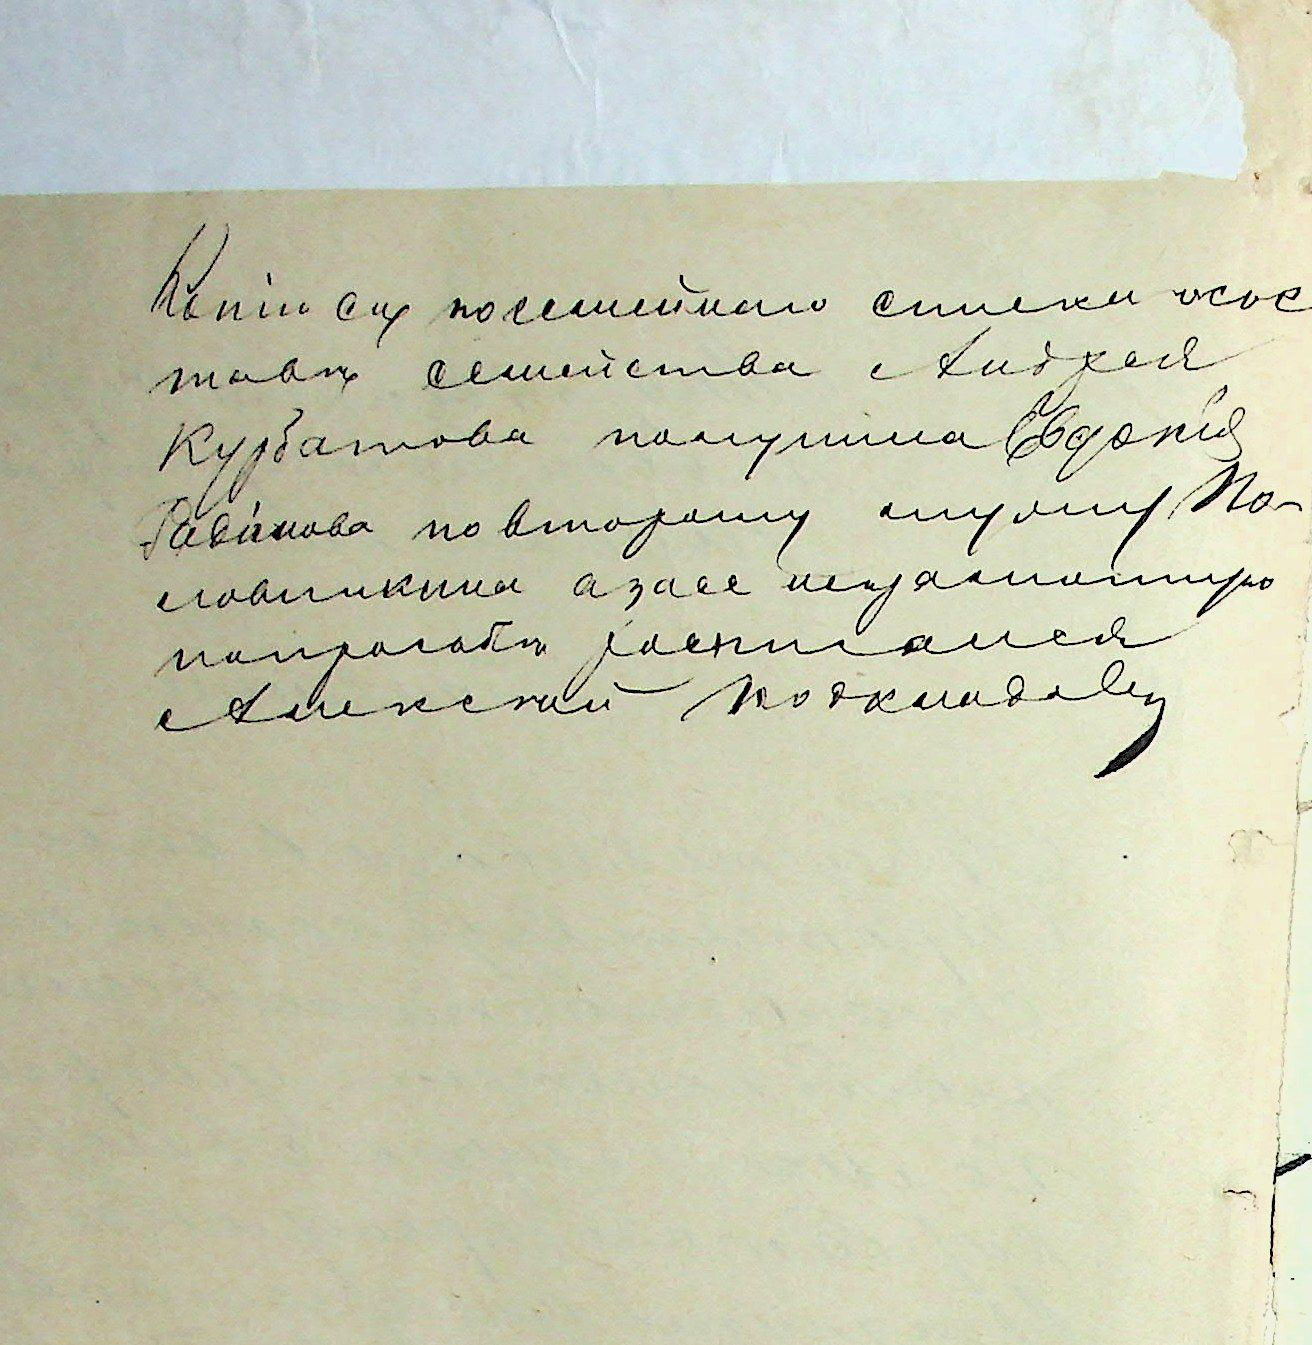 Копію съ посемейнаго списка осос
тавѣ семейства Андрея
Курбатова получила Евдокія
Радіонова по второму мужу По-
ловинкина а за ее неграмотную
попрозбѣ росписался
Алексѣй Подкладовъ